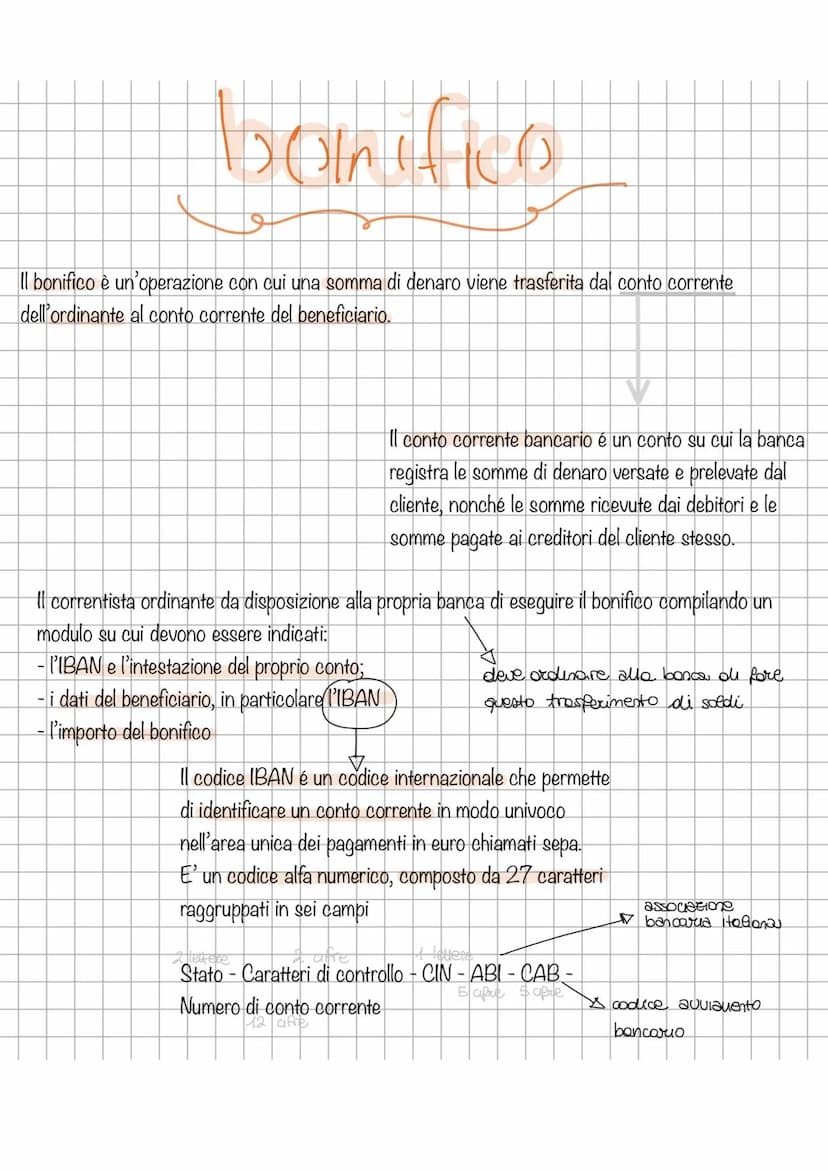 bonifico
Il bonifico è un'operazione con cui una somma di denaro viene trasferita dal conto corrente
dell'ordinante al conto corrente del beneficiario.
Il conto corrente bancario é un conto su cui la banca
registra le somme di denaro versate e prelevate dal
cliente, nonché le somme ricevute dai debitori e le
somme pagate ai creditori del cliente stesso.
Il correntista ordinante da disposizione alla propria banca di eseguire il bonifico compilando un
modulo su cui devono essere indicati:
- l'IBAN e l'intestazione del proprio conto;
deve ordinare alla banca di fare
- i dati del beneficiario, in particolare l'IBAN
questo trasferimento di soldi
- l'importo del bonifico
Il codice IBAN é un codice internazionale che permette
di identificare un conto corrente in modo univoco
nell'area unica dei pagamenti in euro chiamati sepa.
E' un codice alfa numerico, composto da 27 caratteri
raggruppati in sei campi
associazione
bancaria italiana
2 lettere 2 cifre 1 lettere
Stato - Caratteri di controllo - CIN - ABI - CAB -
5 cifre 5 cifre
Numero di conto corrente
12 cifre
codice avviamento
bancario